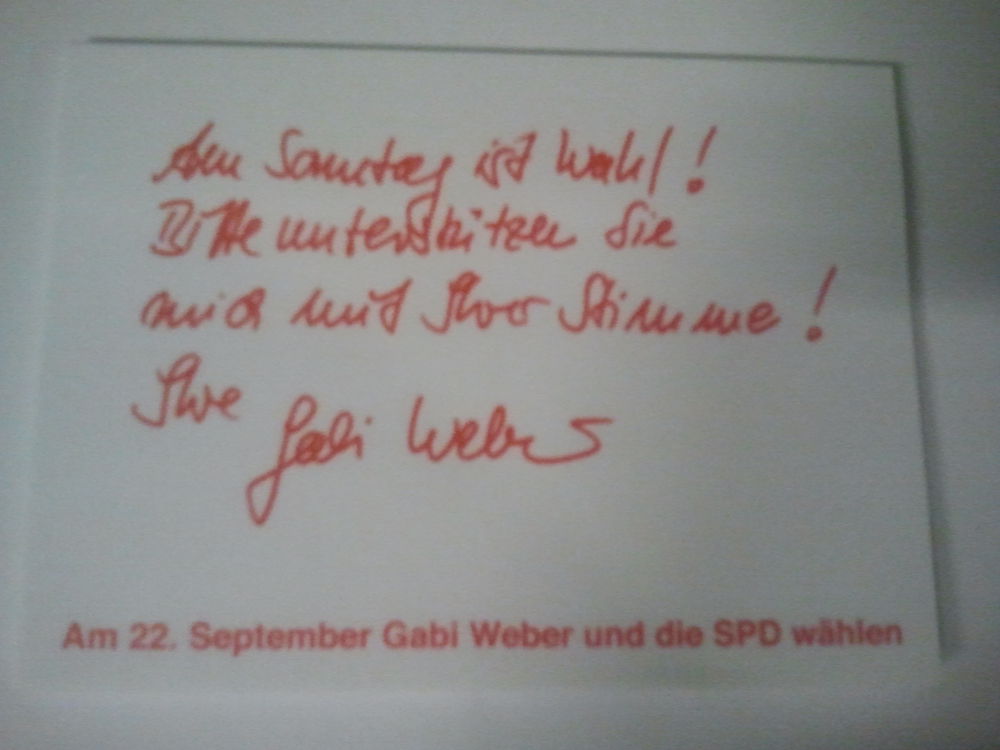 Am Sonntag ist Wahl!
Bitte unterstützen Sie
mich mit Ihrer Stimme!
Ihre
Gabi Weber
Am 22. September Gabi Weber und die SPD wählen